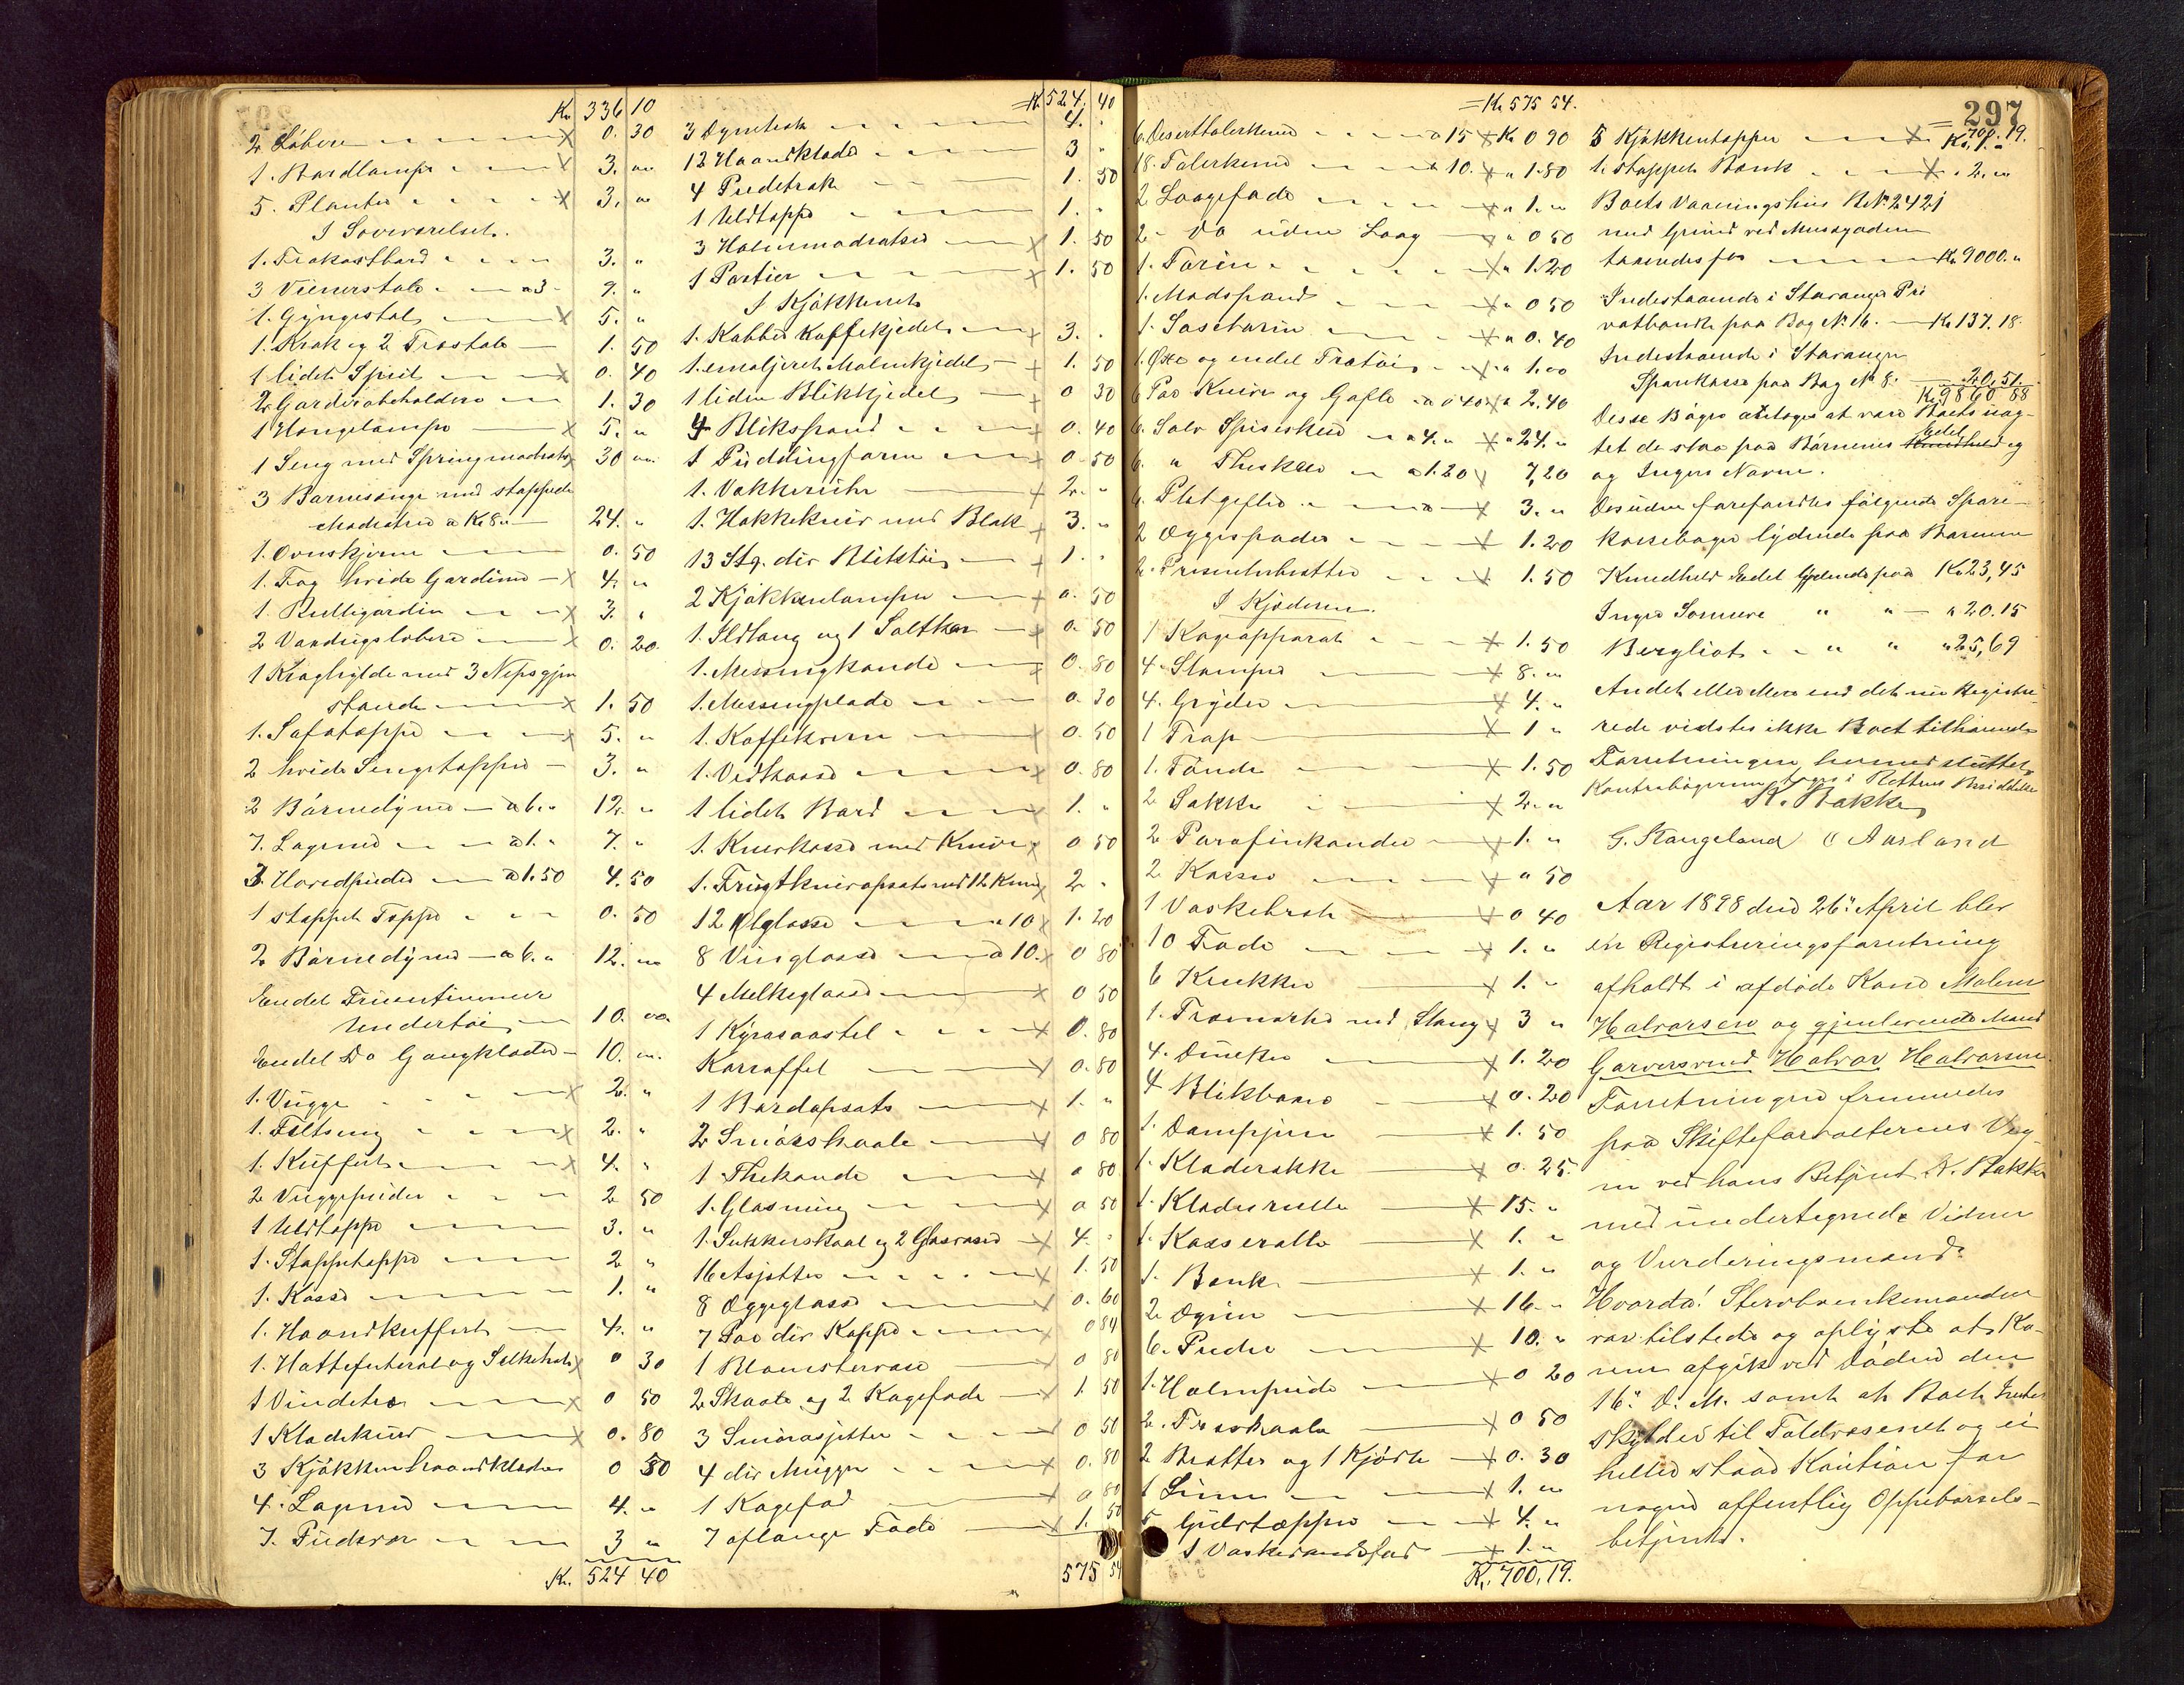 Kr. 336 10
2 Löbere X 0. 30
1. Bordlampe X 3. "
5. Planter X 3. "
I Soveværelset.
1. Frokostbord 3. "
3 Vienerstole a 3 9. "
1. Gyngestol X 5. "
1. Krak og 2 Træstole 1. 50
1 lidet Speil X 0. 40
2 Garderobeholdere 1. 30
1 Hængelampe X 5. "
1 Seng med Springmadrats X 30 "
3 Barnesenge med stoppede
Madratser a Kr 8 " 24. "
1. Ovnskjerm 0. 50
1. Fag hvide Gardiner X 4. "
1. Rullegardin X 3. "
2 Vandrigslobere X 0. 20
1 Kraghylde med 3 Nipsgjen
stande X 1. 50
1. Sofatæppe X 5. "
2 hvide Sengetæpper 3. "
2 Börnedyner a 6. " 12. "
7. Lagener a 1. " 7. "
3. Hovedpuder a 1. 50 4. 50
1 stoppet Tæppe 0. 50
2 Börnedyner a 6. " 12. "
Endel Fruentimmer
Undertöi 10. 00
Endel Do Gangklæder 10. "
1. Vugge X 2. "
1. Feltseng X 2. "
1. Kuffert X 4. "
2 Vuggepuder 2 50
1 Uldtæppe 3. "
1. Stoppetæppe 2 "
1. Kasse 1. "
1. Haandkuffert 4. "
1. Hattefuteral og Silkehat X 0 30
1 Vindetræ X 0 50
1 Kladekurv X 0. 80
3 Kjökkenhaandklæder 0 50
4. Lagener 4. "
7. Pudevar 3 "
Kr. 524 40
= Kr 524. 40
3 Dynetræk 4. "
12 Haandklæder 3 "
4 Pudetræk 1. 50
1 Uldtæppe 1. "
3 Halmmadratser X 1. 50
1 Portier X 1. 50
I Kjökkenet
1. Kobber Kaffekjedel X 3. "
1. emaljeret Malmkjedel + 1. 50
1 liden Blikkjedel + 0 30
4 Blikspand + 0. 40
1 Puddingform + 0. 50
1. Vækkeruhr + 2. "
1. Hakkekniv med Blok + 3. "
13 Stg. div Bliktöi + 1. "
2 Kjökkenlamper + 0. 50
1. Ildtang og 1 Saltkar + 0. 50
1. Messingkande X 0. 80
1. Messingplade 0. 30
1. Kaffekvern X 0. 50
1. Vedkasse X 0. 80
1 lidet Bord X 1. "
1. Knivkasse med Knive X 0 50
1. Frugtknivopsats med 12 Knive X 2 "
12 Ölglasse a 10 X 1. 20
8 Vinglasse a 10. X 0 80
4 Melkeglasse X 0 50
1 Kyrasaastel X 0. 80
Karaffel X 0. 80
1 Bordopsats X 1. "
2 Smörskaale X 0 80
1 Thekande X 0 80
1. Glasming X 0 50
1. Sukkerskaal og 2 Glasvaser X 4. "
16 Asjetter X 1. 50
8 Æggeglasse X 0. 60
7 Par div Kopper X 0 84
1 Blomstervase X 0 80
2 Skaale og 2 Kagefade X 1. 50
3 Smörasjetter X 0 50
4 div Mugger X 0. 80
1 Kagefad X 0 80
7 aflange Fade X 1. 50
575 54
= Kr 575 54.
6. Desserttalerkener a 15 X Kr 0 90
18. Talerkener a 10. X " 1.80
2 Laagefade X " 1. "
2 - Do uden Laag X " 0 50
1. Tærin X " 1.20
1. Madspand X " 0 50
1. Sosetærin X " 0. 40
1. Øse og endel Trætöi X " 1.00
6 Par Knive og Gafle a 0 40 X " 2.40
6. Sölv Spiseskeer a 4. " X " 24. "
6. " Theskeer a 1.20 X 7,20
6. Pletgafler a X 3. "
2 Æggespader X 1.20
2. Presenterbretter X 1.50
I Kjælderen.
1 Kogeapparat X 1.50
4 Stamper X 8. "
4. Gryder X 4. "
1 Trap X 1 "
1. Tönde X 1.50
2 Sække X 2. "
2 Parafinkander X 1. "
2 Kasser X " 50
1 Vaskebræt X 0 40
10 Fade X 1. "
6 Krukker X 1. "
1. Træmærke med Stang X 3 "
4. Dunker X 1. 20
4 Blikboxe X 0. 20
1. Dampjern X 1. 50
1. Klædesække X 0. 25.
1. Klæderulle X 15. "
1. Kasserolle X 1. "
1. Benk X 1. "
2. Dyner X 16. "
6. Puder X 10. "
1. Halmpude X 0 20
2. Træskaale X 0 50
2 Bretter og 1 Kjörel X 0. 30
1 Line X 1. "
5 Gulvtæpper X 4. "
1 Vaskevandsfad X 1. "
Kr. 700,19.
297
= 700. 19.
5 Kjökkentæpper X Kr. 1. "
1. stoppet Bænk X " 2. "
Boets Vaaningshus B No 2421
med Grund ved Musegaden
taxeredes for Kr 9000. "
Indestaaende i Stavanger Pri
vatbank paa Bog No 16. Kr 137. 18.
Indestaaende i Stavanger
Sparkasse paa Bog No 8. " 20,51.
Kr. 9860 88
Disse Böger antages at være Boets uag-
tet de staa paa Börnenes Edel
og Ingers Navne.
Desuden forefandtes fölgende Spare-
kassebøger lydende paa Barnene
Knudheld Endel lydende paa Kr 23,45
Inger Somine " " " 20.15
Bergliot " " " 25,69
Andet eller Mere end det nu Registre-
rede vidstes ikke Boet tilhörende
Forretningen hermed sluttet
Kontrabögerne toges i Rettens Besiddelse
N. Bakke
G. Stangeland O Aarland
Aar 1898 den 26" April blev
en Registreringsforretning
afholdt i afdöde Kone Malene
Halvorsen og gjenlevende Mand
Garversvend Halvor Halvorsen
Forretningen fremmedes
paa Skifteforvalterens Veg-
ne ved hans Betjent N. Bakke
med undertegnede Vidner
og Vurderingsmænd.
Hvorda! Stervboenkemanden
var tilstede og oplyste at Ko-
nen afgik ved Döden den
16" D. M. samt at Boet Intet
skylder til Toldvæsenet og ei
heller staar Kaution for
nogen offentlig Oppebörsels-
betjent.